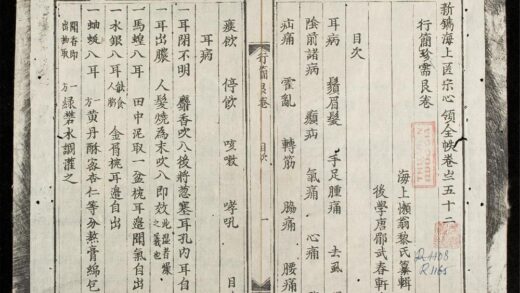 新鐫海上醫宗心領全帙卷之五十二
行簡珍需艮卷
海上懶翁黎氏纂輯
後學唐郿武春軒
目次
耳病 鬚眉髮 手足腫痛 去虱
陰前諸病 癲病 氣痛 心痛
疝痛 霍亂 轉筋 腸痛 腰痛
行簡艮卷 目次 一
痰飲 停飲 咳嗽 哮吼
目次
耳病
一耳閉不明 麝香吹入後將蔥塞耳孔內耳自
一耳出膿 人髮燒為末吹入即效
一馬蝗入耳 田中泥取一盆枕耳邊聞氣自出
一水銀入耳 金屑枕耳邊自出
一蚰蜓入耳 一方黃丹酥蜜杏仁等分熬膏綿包
聞香即出抽取 一方綠礬水調灌之
THU VIEN
R.1108
R1165